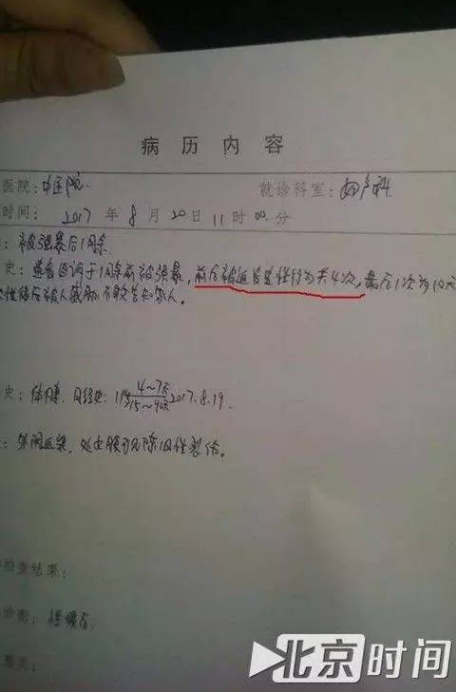 病历内容
医院：中医院 就诊科室：妇产科
时间：2017年8月20日11时00分
：被强暴后1月余
史：患者自诉于1月余前被强暴，前后被迫发生性行为共4次，最后1次为10天
被人威胁不敢告知家人。
史：体健，月经史：4~7天 2017.8.19.
：外阴 处女膜可见陈旧性裂伤。
检查结果：
诊断：
北京时间